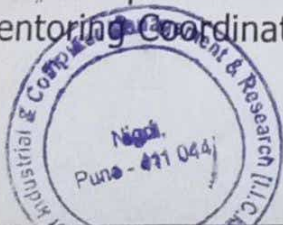 entoring Coordinat
Industrial & Comp & Research (I.I.C.
Nigdi,
Pune - 411 044